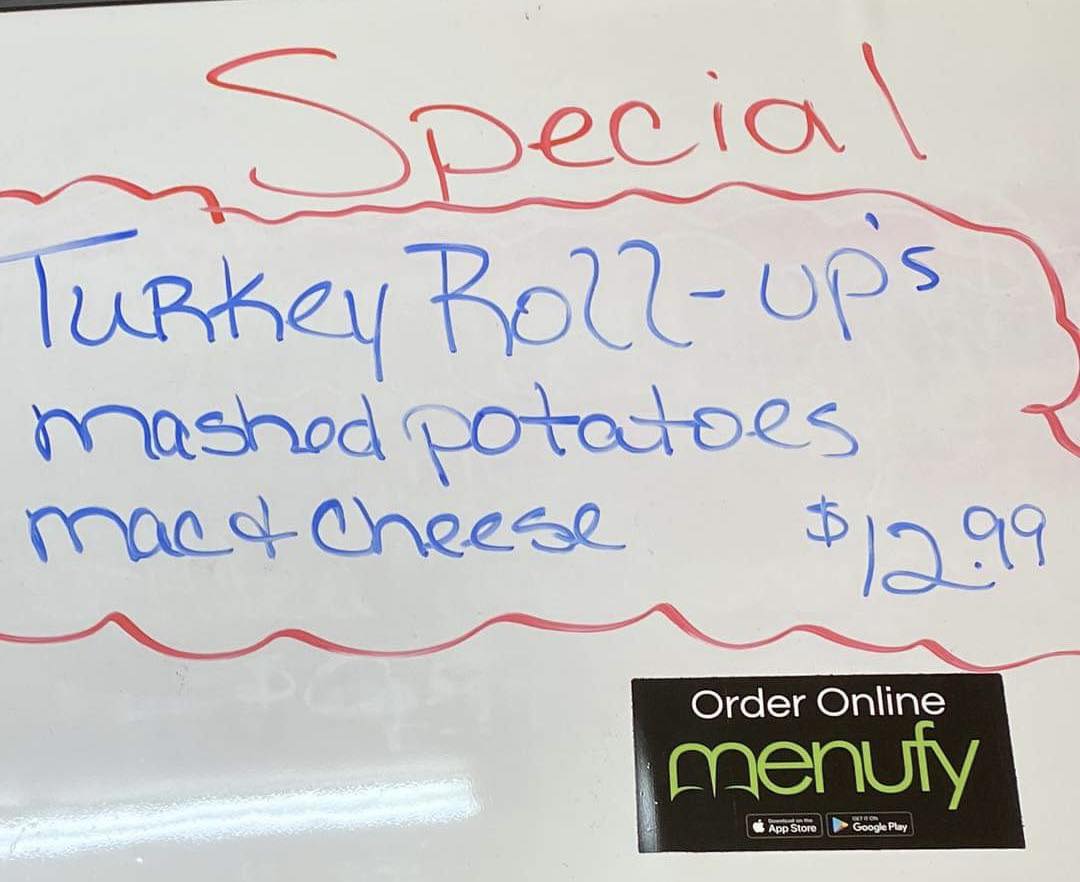 Special
Turkey Roll-up's
mashed potatoes
mac & Cheese $12.99
Order Online
menufy
Download on the App Store GET IT ON Google Play